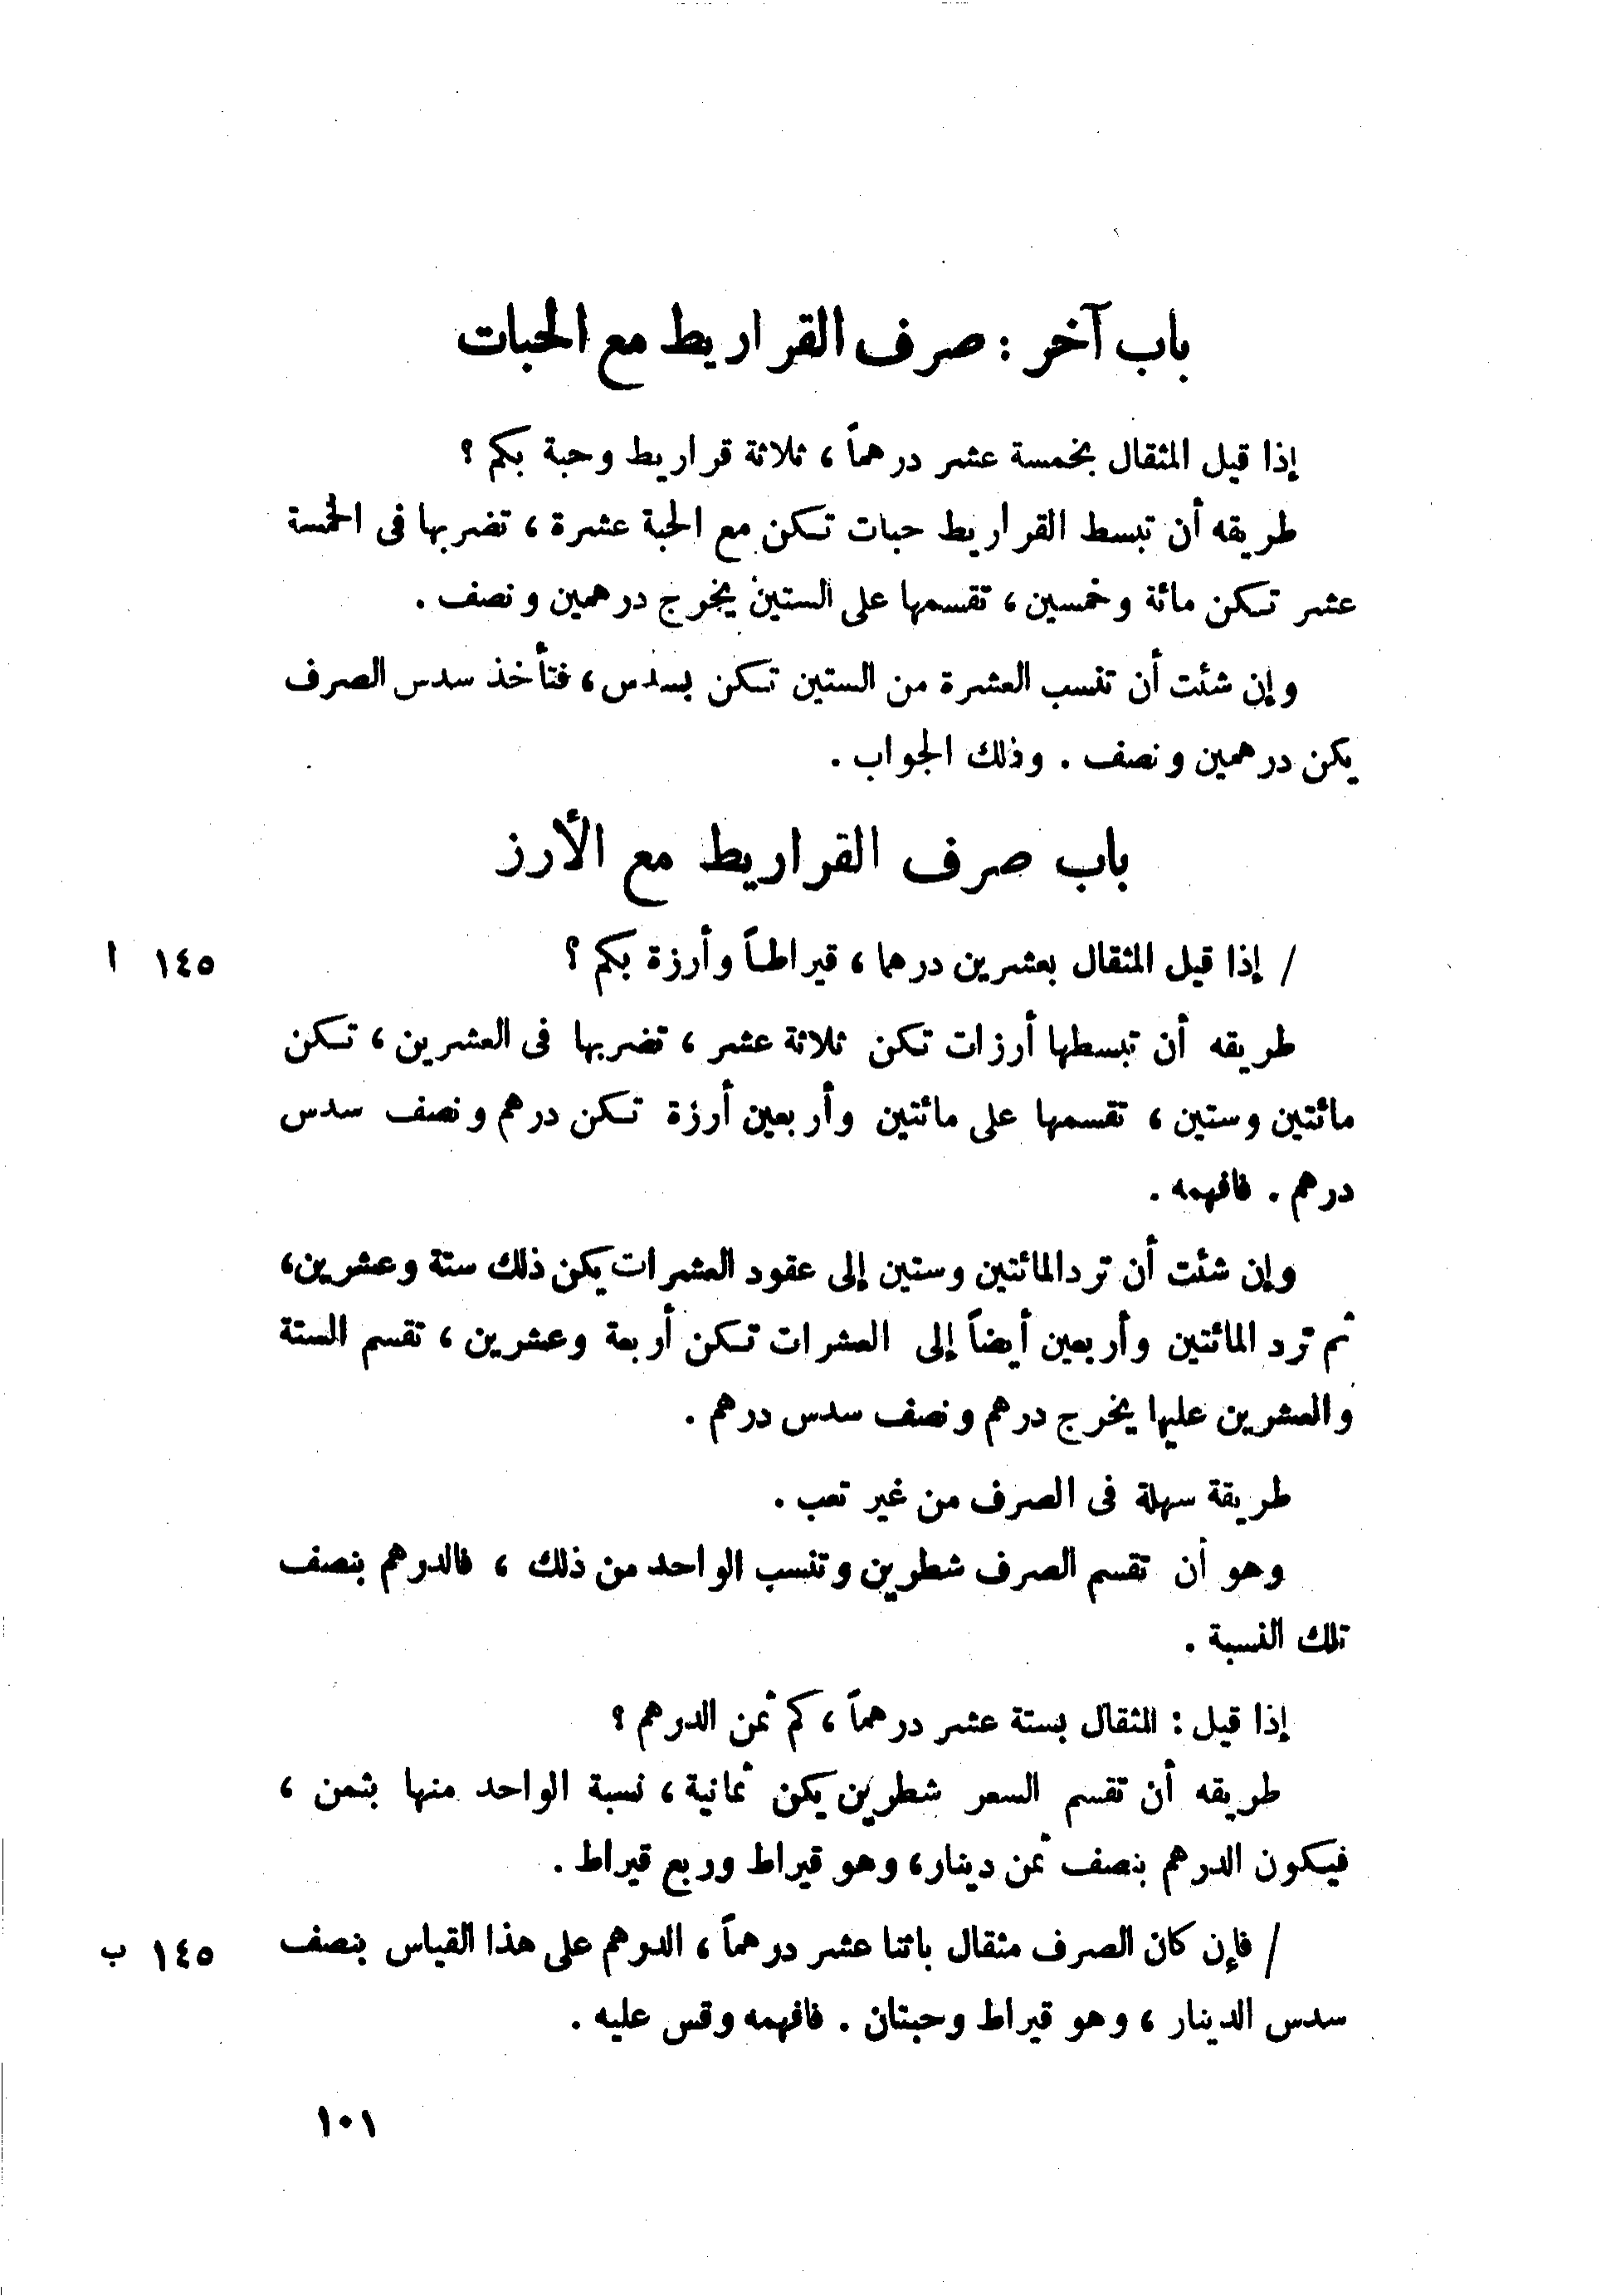 باب آخر : صرف القراريط مع الحبات
إذا قيل المثقال بخمسة عشر درهماً ، ثلاثة قراريط وحبة بكم ؟
طريقه أن تبسط القراريط حبات تكن مع الحبة عشرة ، تضربها فى الخمسة
عشر تكن مائة وخمسين ، تقسمها على الستين يخرج درهمين ونصف .
وإن شئت أن تنسب العشرة من الستين تكن بسدس ، فتأخذ سدس الصرف
يكن درهمين ونصف . وذلك الجواب .
باب صرف القراريط مع الأرز
/ إذا قيل المثقال بعشرين درهما ، قيراطاً وأرزة بكم ؟ ١٤٥ ا
طريقه أن تبسطها أرزات تكن ثلاثة عشر ، تضربها فى العشرين ، تكن
مائتين وستين ، تقسمها على مائتين وأربعين أرزة تكن درهم ونصف سدس
درهم . فافهمه .
وإن شئت أن ترد المائتين وستين إلى عقود العشرات يكن ذلك ستة وعشرين ،
ثم ترد المائتين وأربعين أيضاً إلى العشرات تكن أربعة وعشرين ، تقسم الستة
والعشرين عليها يخرج درهم ونصف سدس درهم .
طريقة سهلة فى الصرف من غير تعب .
وهو أن تقسم الصرف شطرين وتنسب الواحد من ذلك ، فالدرهم بنصف
تلك النسبة .
إذا قيل : المثقال بستة عشر درهماً ، كم ثمن الدرهم ؟
طريقه أن تقسم السعر شطرين يكن ثمانية ، نسبة الواحد منها بثمن ،
فيكون الدرهم بنصف ثمن دينار ، وهو قيراط وربع قيراط .
/ فإن كان الصرف مثقال باثنا عشر درهماً ، الدرهم على هذا القياس بنصف ١٤٥ ب
سدس الدينار ، وهو قيراط وحبتان . فافهمه وقس عليه .
١٠١